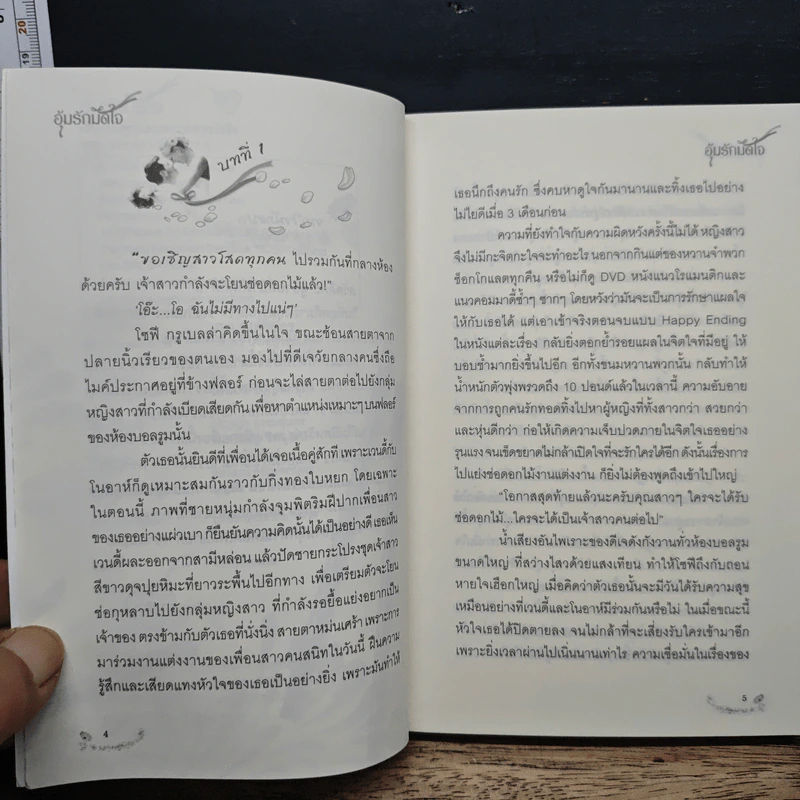 20
19
อุ้มรักมัดใจ
บทที่ 1
"ขอเชิญสาวโสดทุกคน ไปรวมกันที่กลางห้อง
ด้วยครับ เจ้าสาวกำลังจะโยนช่อดอกไม้แล้ว!"
'โอ๊ะ...โอ ฉันไม่มีทางไปแน่ๆ'
โซฟี กรูเบลล่าคิดขึ้นในใจ ขณะช้อนสายตาจาก
ปลายนิ้วเรียวของตนเอง มองไปที่ดีเจวัยกลางคนซึ่งถือ
ไมค์ประกาศอยู่ที่ข้างฟลอร์ ก่อนจะไล่สายตาต่อไปยังกลุ่ม
หญิงสาวที่กำลังเบียดเสียดกัน เพื่อหาตำแหน่งเหมาะๆ บนฟลอร์
ของห้องบอลรูมนั้น
ตัวเธอนั้นยินดีที่เพื่อนได้เจอเนื้อคู่สักที เพราะเวนดี้กับ
โนอาห์ก็ดูเหมาะสมกันราวกับกิ่งทองใบหยก โดยเฉพาะ
ในตอนนี้ ภาพที่ชายหนุ่มกำลังจุมพิตริมฝีปากเพื่อนสาว
ของเธออย่างแผ่วเบา ก็ยืนยันความคิดนั้นได้เป็นอย่างดี เธอเห็น
เวนดี้ผละออกจากสามีหล่อน แล้วปัดชายกระโปรงชุดเจ้าสาว
สีขาวดุจปุยหิมะที่ยาวระพื้นไปอีกทาง เพื่อเตรียมตัวจะโยน
ช่อกุหลาบไปยังกลุ่มหญิงสาว ที่กำลังรอยื้อแย่งอยากเป็น
เจ้าของ ตรงข้ามกับตัวเธอที่นั่งนิ่ง สายตาหม่นเศร้า เพราะการ
มาร่วมงานแต่งงานของเพื่อนสาวคนสนิทในวันนี้ ฝืนความ
รู้สึกและเสียดแทงหัวใจของเธอเป็นอย่างยิ่ง เพราะมันทำให้
4
อุ้มรักมัดใจ
เธอนึกถึงคนรัก ซึ่งคบหาดูใจกันมานานและทิ้งเธอไปอย่าง
ไม่ไยดีเมื่อ 3 เดือนก่อน
ความที่ยังทำใจกับความผิดหวังครั้งนี้ไม่ได้ หญิงสาว
จึงไม่มีกะจิตกะใจจะทำอะไร นอกจากกินแต่ของหวานจำพวก
ช็อกโกแลตทุกคืน หรือไม่ก็ดู DVD หนังแนวโรแมนติกและ
แนวคอมมาดี้ซ้ำๆ ซากๆ โดยหวังว่ามันจะเป็นการรักษาแผลใจ
ให้กับเธอได้ แต่เอาเข้าจริงตอนจบแบบ Happy Ending
ในหนังแต่ละเรื่อง กลับยิ่งตอกย้ำรอยแผลในจิตใจที่มีอยู่ ให้
บอบช้ำมากยิ่งขึ้นไปอีก อีกทั้งขนมหวานพวกนั้น กลับทำให้
น้ำหนักตัวพุ่งพรวดถึง 10 ปอนด์แล้วในเวลานี้ ความอับอาย
จากการถูกคนรักทอดทิ้งไปหาผู้หญิงที่ทั้งสาวกว่า สวยกว่า
และหุ่นดีกว่า ก่อให้เกิดความเจ็บปวดภายในจิตใจเธออย่าง
รุนแรง จนเข็ดขยาดไม่กล้าเปิดใจที่จะรักใครได้อีก ดังนั้นเรื่องการ
ไปแย่งช่อดอกไม้งานแต่งงาน ก็ยิ่งไม่ต้องพูดถึงเข้าไปใหญ่
"โอกาสสุดท้ายแล้วนะครับคุณสาวๆ ใครจะได้รับ
ช่อดอกไม้...ใครจะได้เป็นเจ้าสาวคนต่อไป"
น้ำเสียงอันไพเราะของดีเจดังกังวานทั่วห้องบอลรูม
ขนาดใหญ่ ที่สว่างไสวด้วยแสงเทียน ทำให้โซฟีถึงกับถอน
หายใจเฮือกใหญ่ เมื่อคิดว่าตัวเธอนั้นจะมีวันได้รับความสุข
เหมือนอย่างที่เวนดี้และโนอาห์มีร่วมกันหรือไม่ ในเมื่อขณะนี้
หัวใจเธอได้ปิดตายลง จนไม่กล้าที่จะเสี่ยงรับใครเข้ามาอีก
เพราะยิ่งเวลาผ่านไปเนิ่นนานเท่าไร ความเชื่อมั่นในเรื่องของ
5